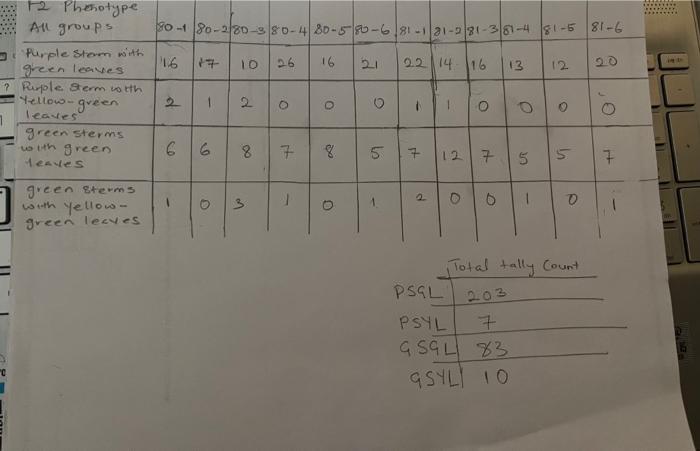 F2 Phenotype
All groups 80-1 80-2 80-3 80-4 80-5 80-6 81-1 81-2 81-3 81-4 81-5 81-6
Purple Stem with
green leaves 16 17 10 26 16 21 22 14 16 13 12 20
Purple Stem with
Yellow-green
leaves 2 1 2 0 0 0 1 1 0 0 0 0
green sterms
with green
leaves 6 6 8 7 8 5 7 12 7 5 5 7
green Sterms
with yellow-
green leaves 1 0 3 1 0 1 2 0 0 1 0 1
Total tally Count
PSGL 203
PSYL 7
GSGL 83
GSYL 10